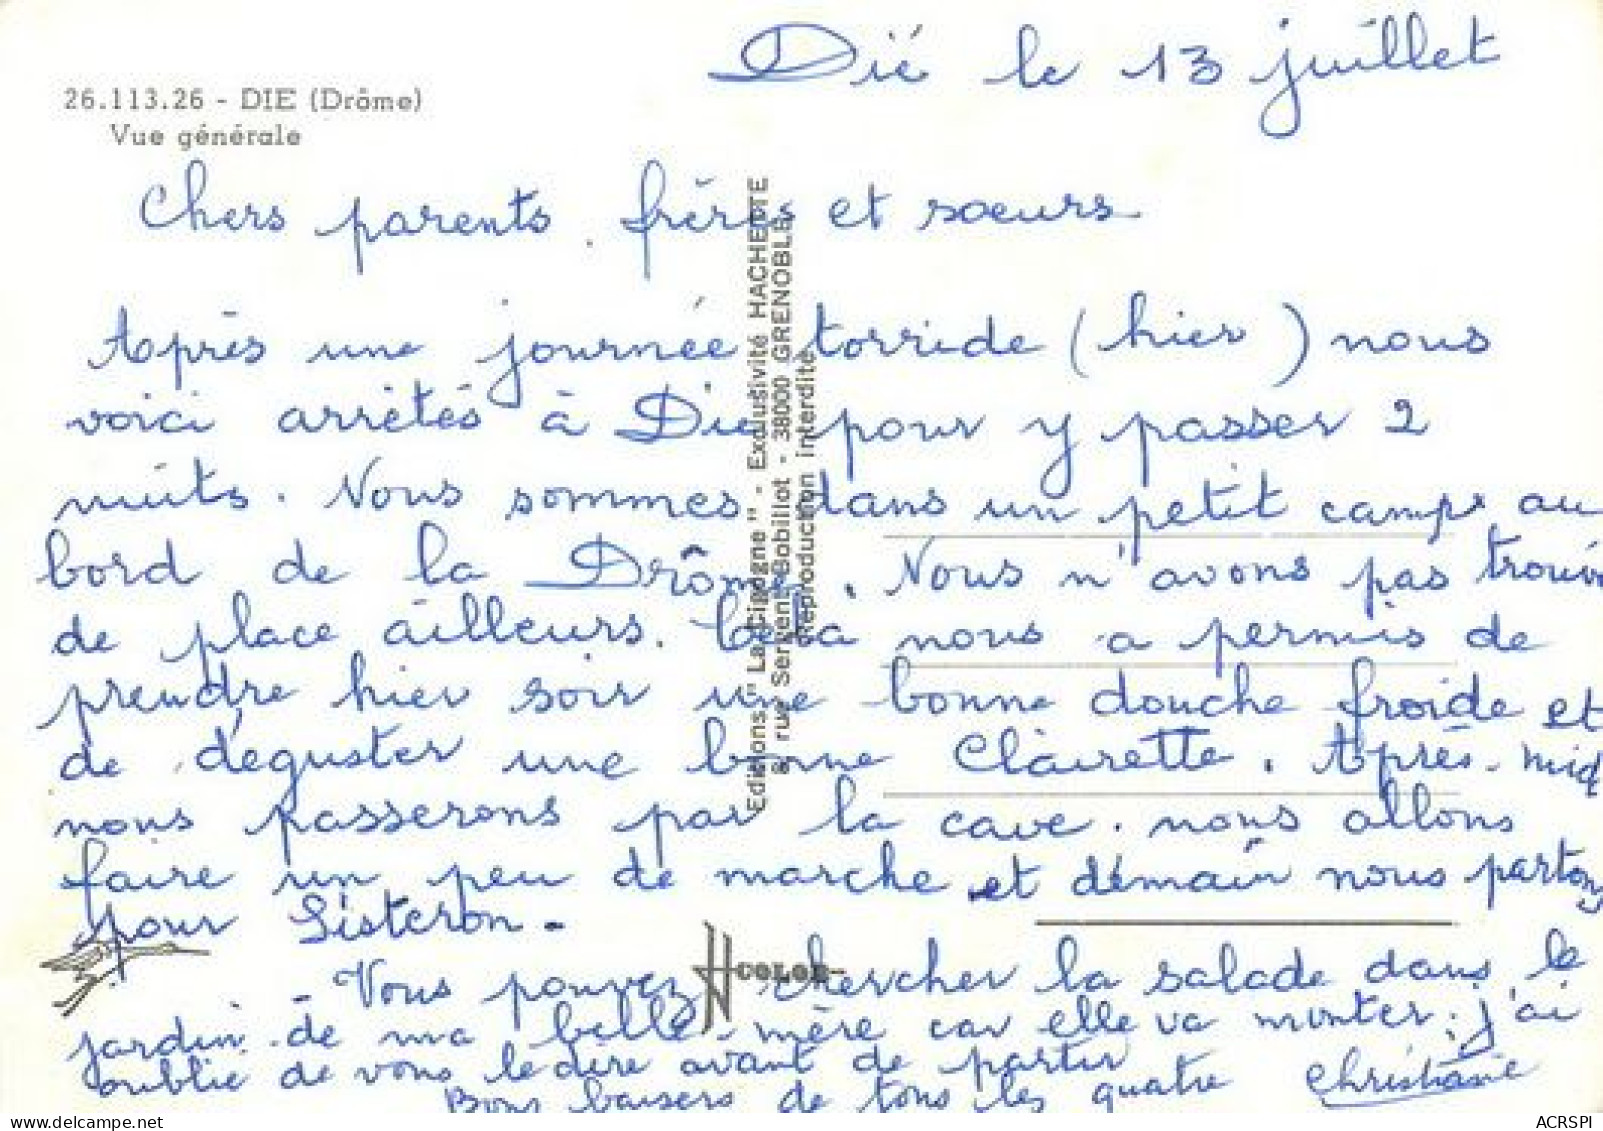 Die le 13 juillet
26.113.26 - DIE (Drôme)
Vue générale
Chers parents, frères et soeurs
Après une journée torride (hier) nous
voici arrêtés à Die pour y passer 2
nuits. Nous sommes dans un petit camp au
bord de la Drôme. Nous n'avons pas trouvé
de place ailleurs. Cela nous a permis de
prendre hier soir une bonne douche froide et
de déguster une bonne Clairette. Après-midi
nous passerons par la cave. nous allons
faire un peu de marche et demain nous partons
pour Sisteron.
Vous pouvez chercher la salade dans le
jardin de ma belle-mère car elle va monter; j'ai
oublié de vous le dire avant de partir
Bons baisers de tous les quatre Christiane
Editions "La Cigogne" - Exclusivité HACHETTE
8, rue Servent-Bobillot - 38000 GRENOBLE
Reproduction interdite
COLOR
ACRSPI